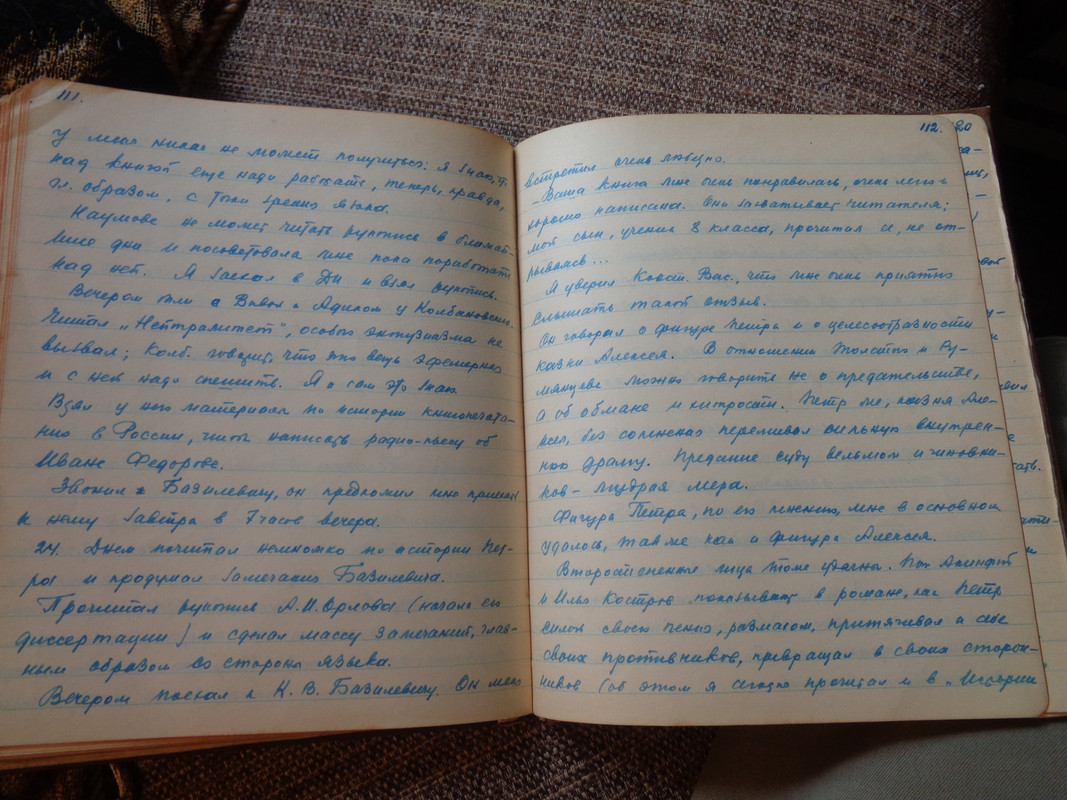 111.
у меня никак не может получиться: я знаю, что
над книгой еще надо работать, теперь, правда,
гл. образом, с точки зрения языка.
Наумова не может читать рукопись в ближай-
шие дни и посоветовала мне пока поработать
над ней. Я заехал в ДИ и взял рукопись.
Вечером были с Вивой и Адиком у Колбановских.
Читал „Нейтралитет", особого энтузиазма не
вызвал; Колб. говорит, что это вещь эфемерная
и с ней надо спешить. Я и сам это знаю.
Взял у него материалы по истории книгопечата-
ния в России, чтобы написать радио-пьесу об
Иване Федорове.
Звонил Базилевичу, он предложил мне приехать
к нему завтра в 7 часов вечера.
24. Днем почитал немножко по истории Пет-
ра и продумал замечания Базилевича.
Прочитал рукопись А.И. Орлова (начало его
диссертации) и сделал массу замечаний, глав-
ным образом со стороны языка.
Вечером поехал к К. В. Базилевичу. Он меня
112.
встретил очень любезно.
- Ваша книга мне очень понравилась, очень легко и
хорошо написана. Она захватывает читателя;
мой сын, ученик 8 класса, прочитал ее, не от-
рываясь...
Я уверил Конст. Вас., что мне очень приятно
слышать такой отзыв.
Он говорил о фигуре Петра и о целесообразности
казни Алексея. В отношении Толстого и Ру-
мянцева можно говорить не о предательстве,
а об обмане и хитрости. Петр же, казня Але-
ксея, без сомнения переживал сильную внутрен-
нюю драму. Предание суду вельмож и чиновни-
ков - мудрая мера.
Фигура Петра, по его мнению, мне в основном
удалась, так же как и фигура Алексея.
Второстепенные лица тоже удачны. Поп Акинфий
и Илья Костров показывают в романе, как Петр
силой своего гения, размахом, притягивал к себе
своих противников, превращал в своих сторон-
ников (об этом я сегодня прочитал и в „Истории
20